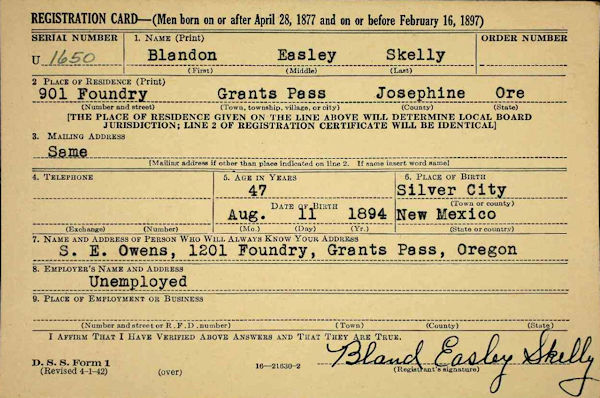 REGISTRATION CARD—(Men born on or after April 28, 1877 and on or before February 16, 1897)
SERIAL NUMBER 1. NAME (Print) ORDER NUMBER
U 1650 Blandon Easley Skelly
(First) (Middle) (Last)
2 PLACE OF RESIDENCE (Print)
901 Foundry Grants Pass Josephine Ore
(Number and street) (Town, township, village, or city) (County) (State)
[THE PLACE OF RESIDENCE GIVEN ON THE LINE ABOVE WILL DETERMINE LOCAL BOARD
JURISDICTION; LINE 2 OF REGISTRATION CERTIFICATE WILL BE IDENTICAL]
3. MAILING ADDRESS
Same
[Mailing address if other than place indicated on line 2. If same insert word same]
4. TELEPHONE 5. AGE IN YEARS 6. PLACE OF BIRTH
47 Silver City
DATE OF BIRTH (Town or county)
Aug. 11 1894 New Mexico
(Exchange) (Number) (Mo.) (Day) (Yr.) (State or country)
7. NAME AND ADDRESS OF PERSON WHO WILL ALWAYS KNOW YOUR ADDRESS
S. E. Owens, 1201 Foundry, Grants Pass, Oregon
8. EMPLOYER'S NAME AND ADDRESS
Unemployed
9. PLACE OF EMPLOYMENT OR BUSINESS
(Number and street or R. F. D. number) (Town) (County) (State)
I AFFIRM THAT I HAVE VERIFIED ABOVE ANSWERS AND THAT THEY ARE TRUE.
D. S. S. Form 1 Bland Easley Skelly
(Revised 4-1-42) (over) 16—21630-2 (Registrant's signature)